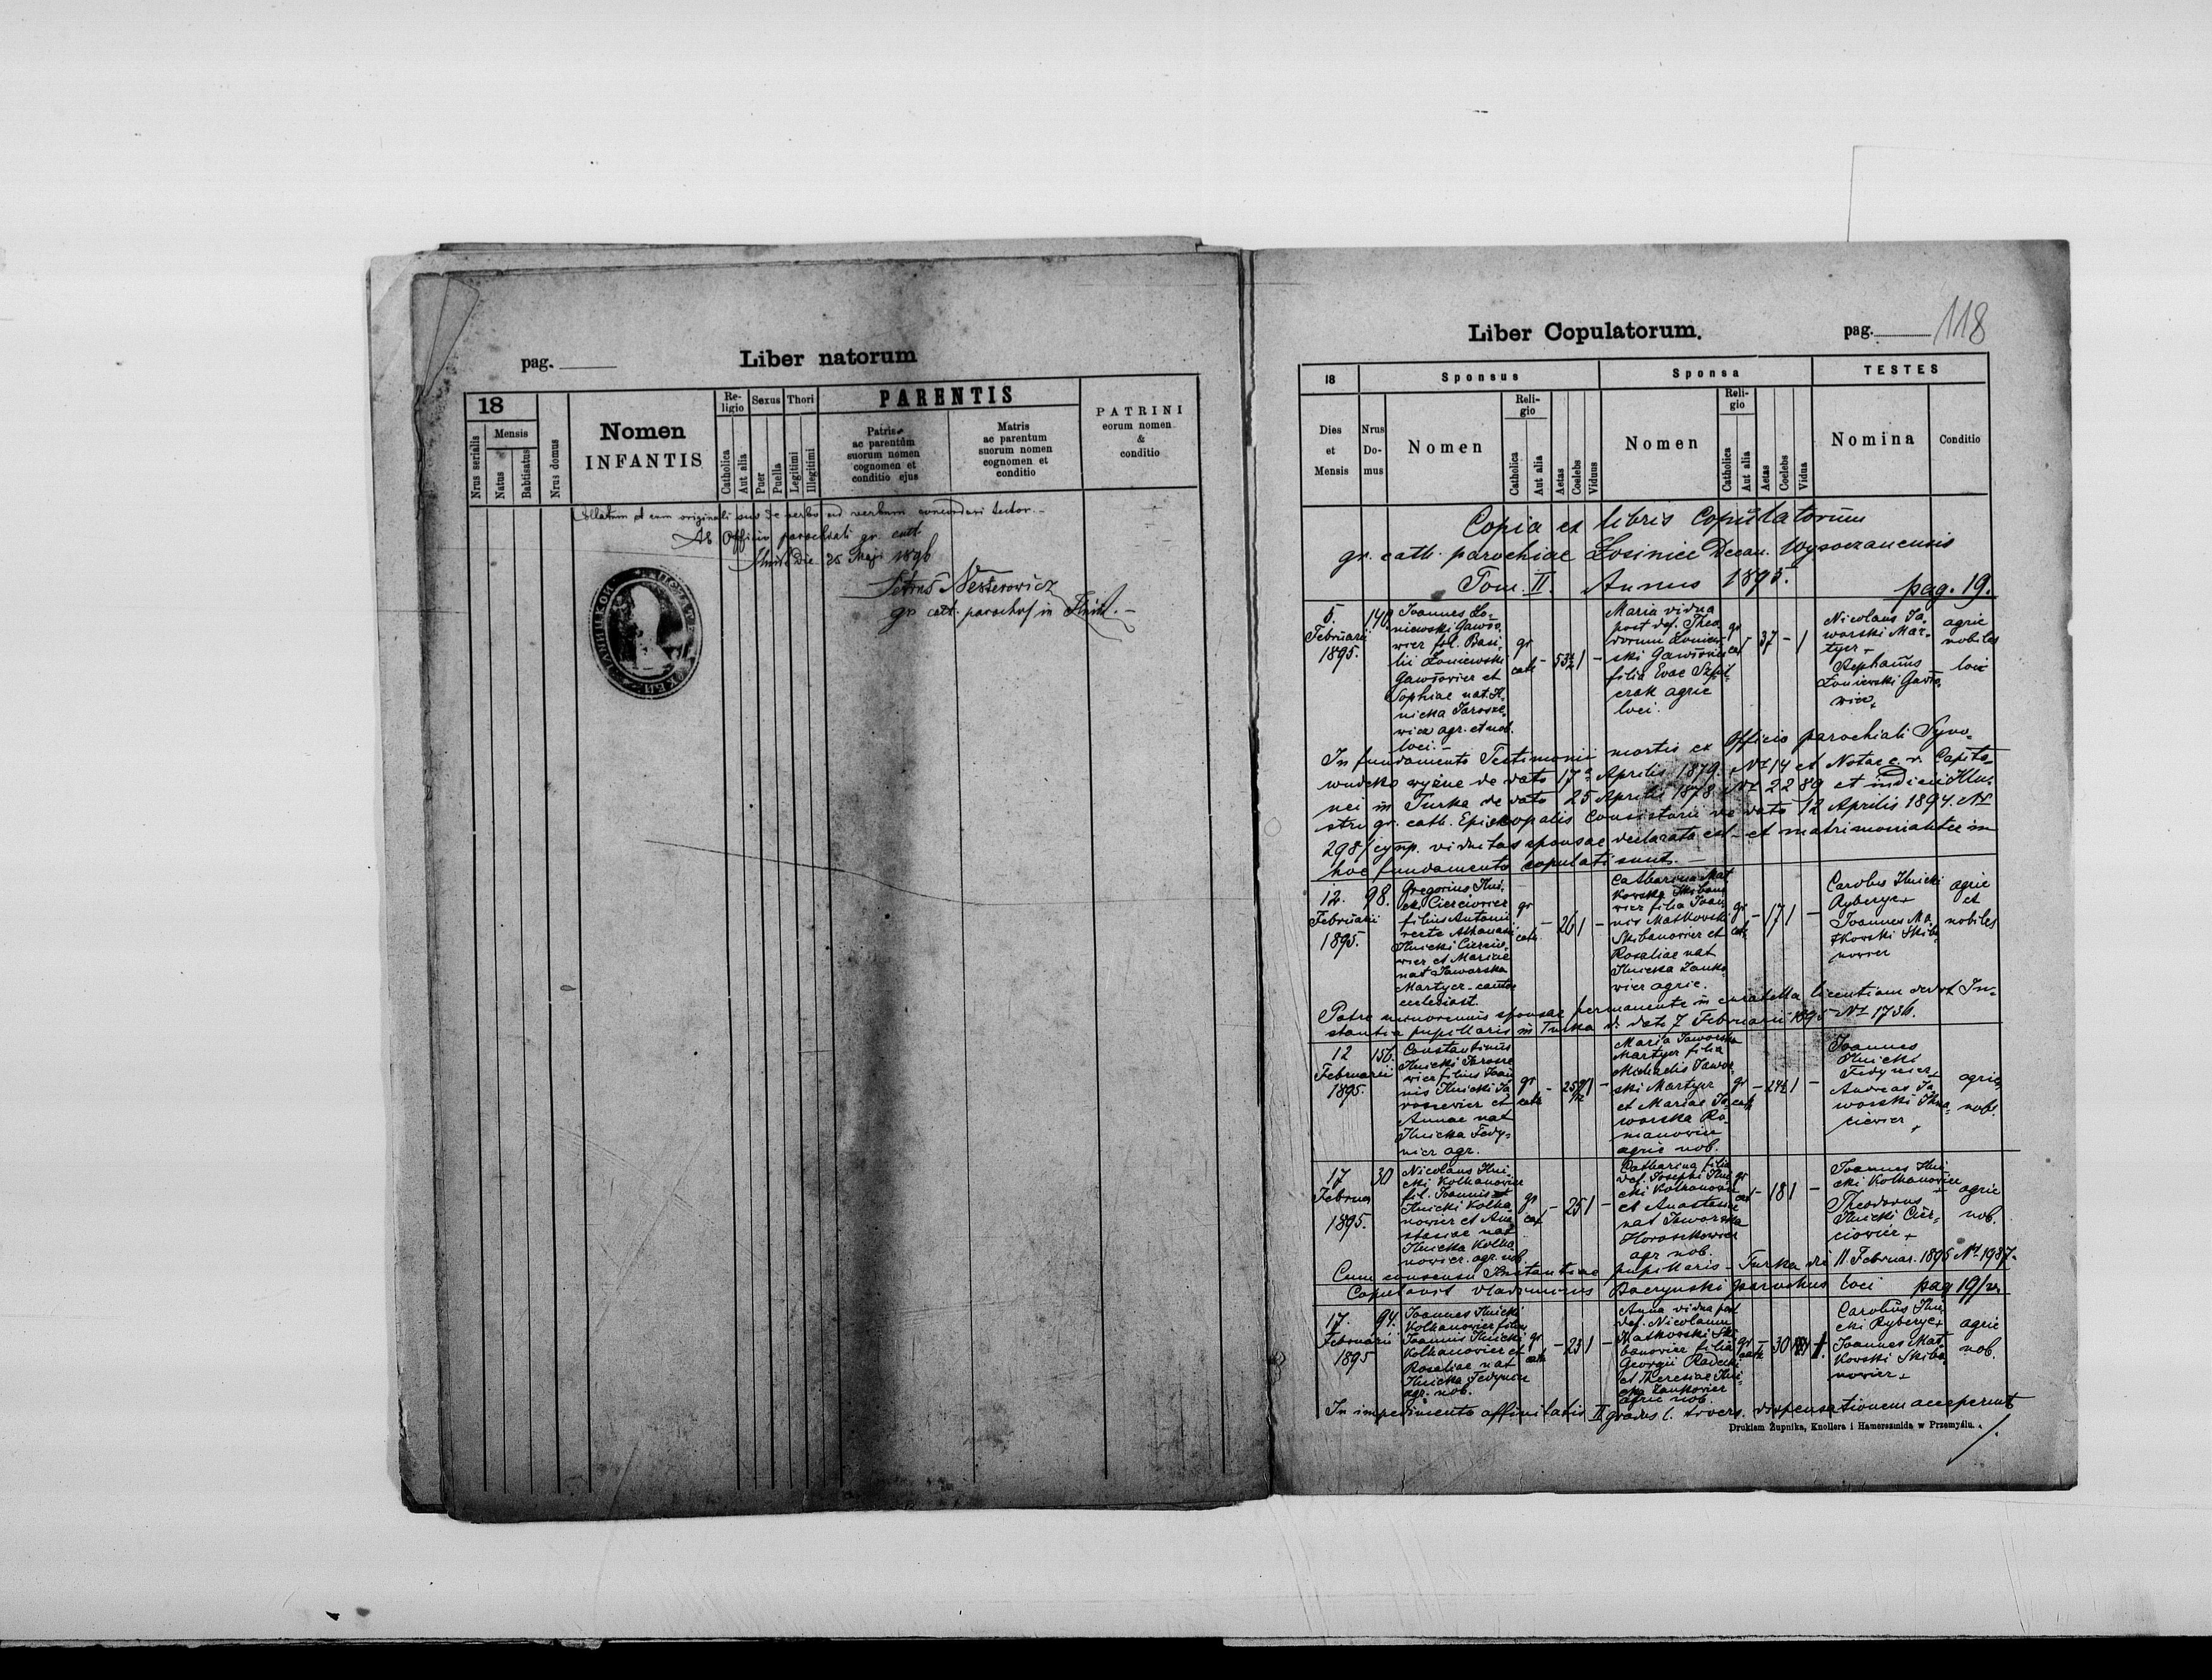 pag.
Liber natorum
18
Nrus serialis
Mensis
Natus
Babtisatus
Nrus domus
Nomen
INFANTIS
Re-
ligio
Catholica
Aut alia
Sexus
Puer
Puella
Thori
Legitimi
Illegitimi
PARENTIS
Patris
ac parentum
suorum nomen
cognomen et
conditio ejus
Matris
ac parentum
suorum nomen
cognomen et
conditio
PATRINI
eorum nomen
&
conditio
Collatum et cum originali suo de verbo ad verbum concordari testor.
Ab Officio parochiali gr. cath.
die 25 Maji 1896
Petrus Nesterowicz
gr. cath. parochus in
Liber Copulatorum.
pag. 118
18
Sponsus
Sponsa
TESTES
Dies
et
Mensis
Nrus
Do-
mus
Nomen
Reli-
gio
Catholica
Aut alia
Aetas
Coelebs
Viduus
Nomen
Reli-
gio
Catholica
Aut alia
Aetas
Coelebs
Vidua
Nomina
Conditio
Copia ex libris Copulatorum
gr. cath. parochiae Łosiniec Decan. Wysoczanensis
Tom. II. Annus 1895.
pag. 19.
5.
Februarii
1895.
140.
Joannes Ło-
niewski Gawło-
wicz fil. Basi-
lii Łoniewski
Gawłowicz et
Sophiae nat. Il-
nicka Jarosze-
wicz agr. et nob.
loci. -
gr
cath
- 53½ 1 -
Maria vidua
post def. Theo-
dorum Łoniew-
ski Gawłowicz
filia Evae
agric
loci.
gr
cat
- 37 - 1
Nicolaus Ja-
worski Mar-
tycz +
Stephanus
Łoniewski Gawło-
wicz +
agric
nobiles
loci
In fundamento Testimonii mortis ex Officio parochiali Syno-
wudcko wyżne de dato 17 Aprilis 1879. Nr 14 et Notae c. r. Capita-
nei in Turka de dato 25 Aprilis 1878 Nr 2289 et indicii Illu-
stri gr. cath. Episcopalis Consistorii de dato 12 Aprilis 1894. Nr
298/ viduitas sponsae declarata est - et matrimonialiter in
hoc fundamento copulati sunt. -
12.
Februarii
1895.
98.
Gregorius Ilni-
cki Cierciowicz
filius Antonii
recte Athanasii
Ilnicki Cierciо-
wicz et Mariae
nat Jaworska
Martycz - cantor
ecclesiast.
gr
cath.
- 26 1 -
Catharina Mat
kowska Skibano
wicz filia Joan-
nis Matkowski
Skibanowicz et
Rosaliae nat
Ilnicka Janko-
wicz agric.
gr
cat
- 17 1 -
Carolus Ilnicki
Ryberycz +
Joannes Ma-
tkowski Skiba-
nowicz
agric
et
nobiles
Patre minorennis sponsae permanente in curatella licentiam dedit In-
stantia pupillaris in Turka d. dato 7 Februarii 1895 Nr 1736.
12
Februarii
1895.
156.
Constantinus
Ilnicki Jarosze
wicz filius Joan
nis Ilnicki Ja-
roszewicz et
Annae nat
Ilnicka Fedy-
nicz agr.
gr
cath
Maria Jaworska
Martycz filia
Michaelis Jawor-
ski Martycz
et Mariae Ja-
worska Ro-
manowicz
agric nob.
gr
cath
- 24½ 1 -
Joannes
Ilnicki
Fedynicz +
Andreas Ja-
worski
+
agric
nob.
17
Februar
1895.
30
Nicolaus Ilni-
cki Kolhanowicz
fil. Joannis
Ilnicki Kolha
nowicz et Ana-
stasiae nat
Ilnicka Kolha
nowicz. agr. nob.
gr
cat
- 25 1 -
Catharina filia
def. Josephi Ilni
cki Kolhanowicz
et Anastasiae
nat Jaworska
Horoszkowicz
agr nob.
gr
cat
- 18 1 -
Joannes Ilni
cki Kolhanowicz
Theodorus +
Ilnicki Cier-
ciowicz +
agric
nob.
Cum consensu Instantiae pupillaris - Turka die 11 Februar. 1895 Nr 1937.
Copulavit Vladimirus Baczynski parochus loci pag 19/
17.
Februarii
1895
94.
Joannes Ilnicki
Kolhanowicz filius
Joannis Ilnicki
Kolhanowicz et
Rosaliae nat
Ilnicka Fedynicz
agr. nob.
gr
cath
- 23 1 -
Anna vidua post
def. Nicolaum
Matkowski Ski
banowicz filia
Georgii Radecki
et Theresiae Ilni-
cka Jankowicz
agric nob.
gr
cath
- 30
Carolus Ilni-
cki Ryberycz +
Joannes Mat
kowski Skiba
nowicz +
agric
nob.
In impedimento affinitatis II gradus l. trvers. dispensationem acceperunt
Drukiem Żupnika, Knollera i Hamerszmida w Przemyślu.